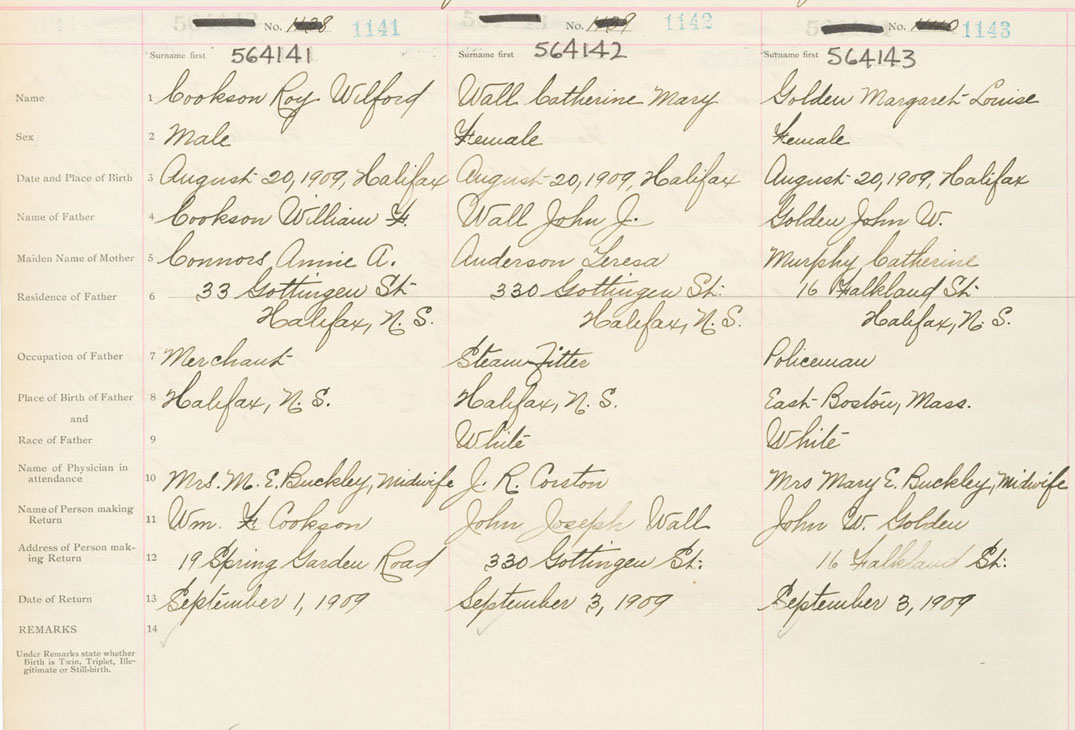 No. 1138 1141 No. 1139 1142 No. 1140 1143
Surname first 564141 Surname first 564142 Surname first 564143
Name 1 Cookson Roy Wilford Wall Catherine Mary Golden Margaret Louise
Sex 2 Male Female Female
Date and Place of Birth 3 August 20, 1909, Halifax August 20, 1909, Halifax August 20, 1909, Halifax
Name of Father 4 Cookson William F. Wall John J. Golden John W.
Maiden Name of Mother 5 Connors Annie A. Anderson Teresa Murphy Catherine
Residence of Father 6 33 Gottingen St. 330 Gottingen St. 16 Falkland St.
Halifax, N. S. Halifax, N. S. Halifax, N. S.
Occupation of Father 7 Merchant Steam Fitter Policeman
Place of Birth of Father 8 Halifax, N. S. Halifax, N. S. East Boston, Mass.
and
Race of Father 9 White White
Name of Physician in
attendance 10 Mrs. M. E. Buckley, Midwife J. R. Corston Mrs Mary E. Buckley, Midwife
Name of Person making
Return 11 Wm. F. Cookson John Joseph Wall John W. Golden
Address of Person mak-
ing Return 12 19 Spring Garden Road 330 Gottingen St. 16 Falkland St.
Date of Return 13 September 1, 1909 September 3, 1909 September 3, 1909
REMARKS 14
Under Remarks state whether
Birth is Twin, Triplet, Ille-
gitimate or Still-birth.